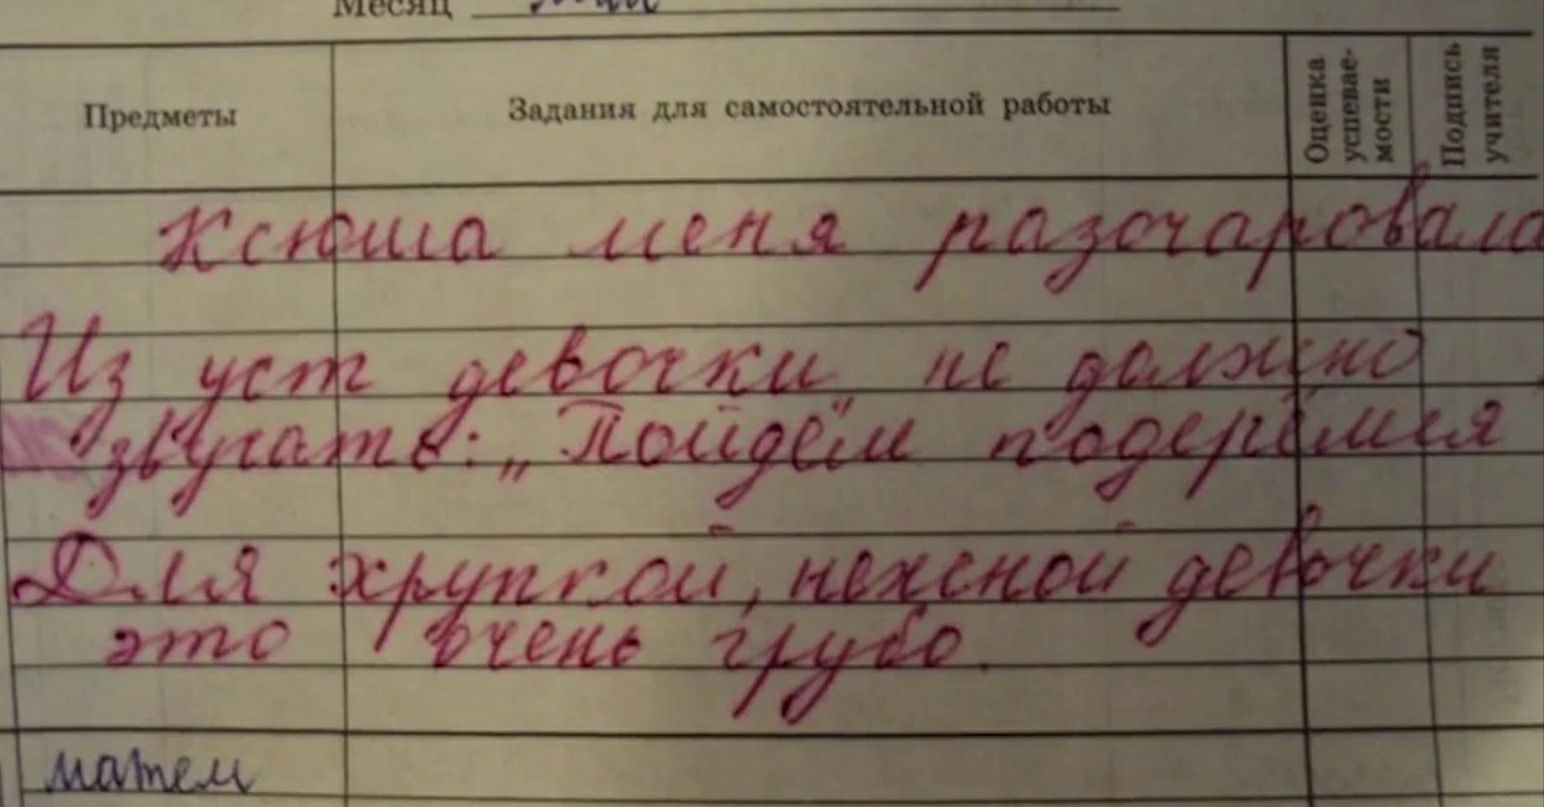 Месяц май
Предметы
Задания для самостоятельной работы
Оценка успеваемости
Подпись учителя
Ксюша меня разочаровала
Из уст девочки не должно
звучать: „Пойдём подерёмся
Для хрупкой, нежной девочки
это очень грубо.
матем